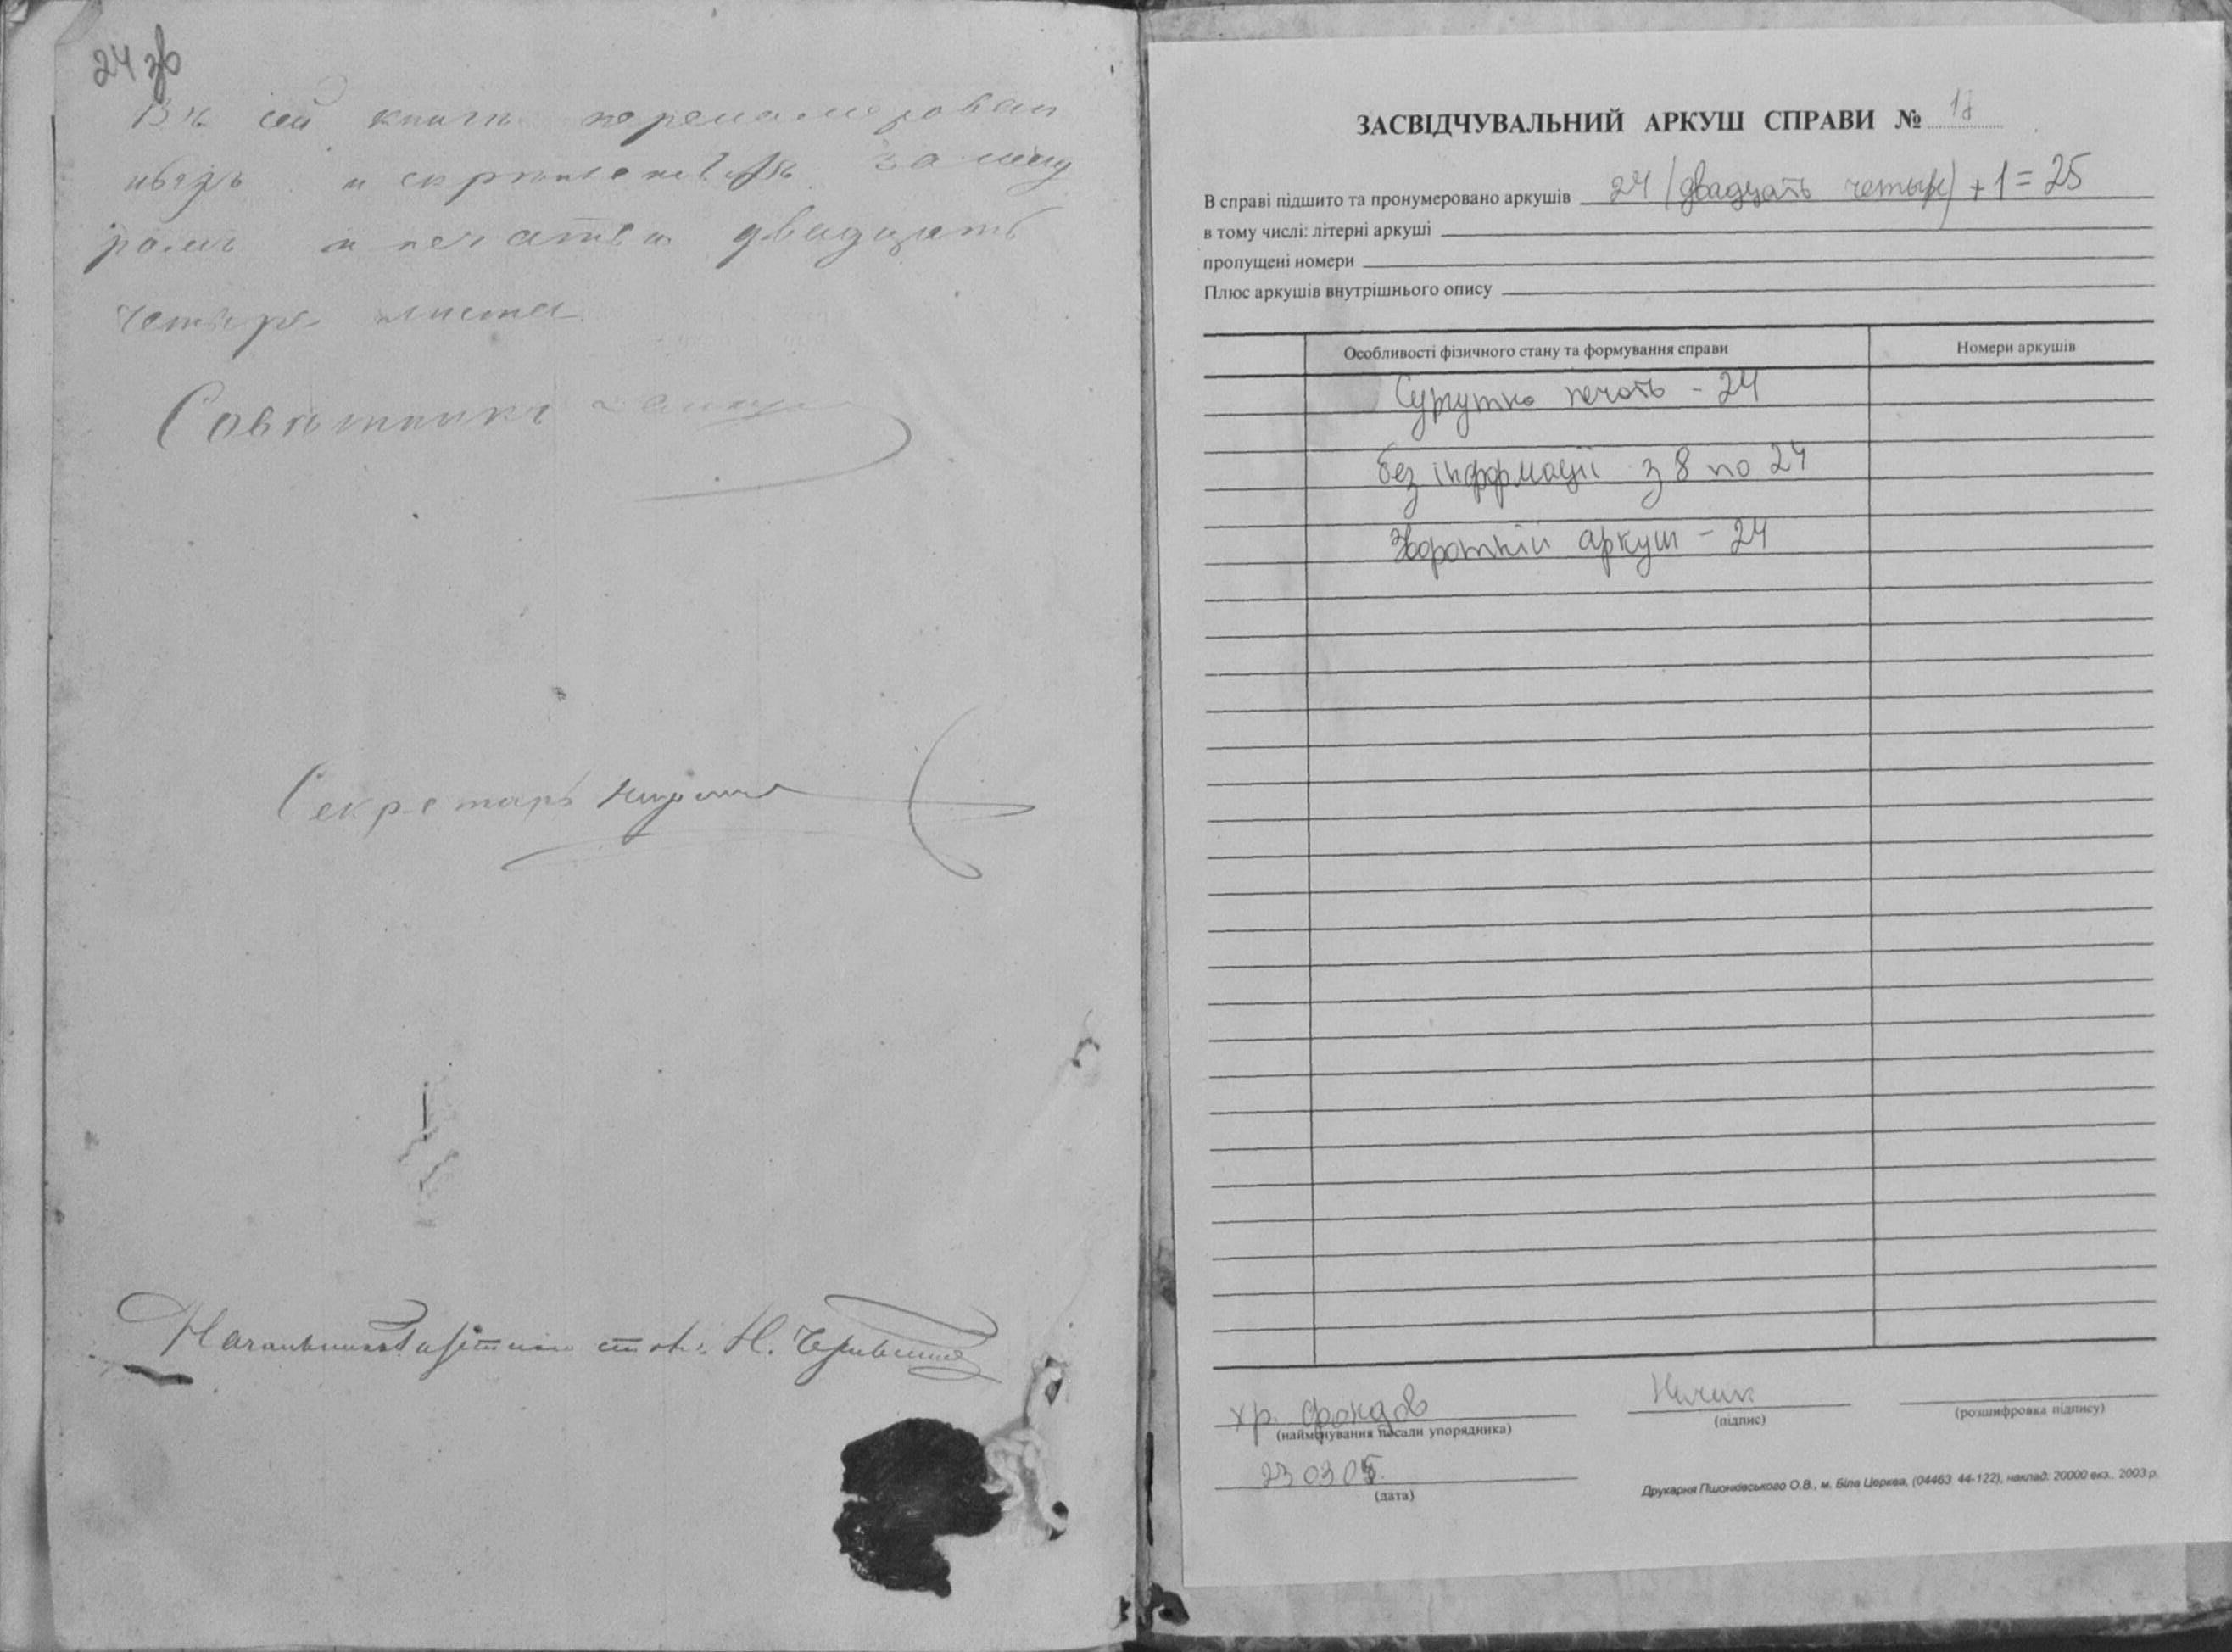 24 зв
Въ сей книгѣ перенумеровано
и скрѣплено за
и печатью двадцать
четыре листа
Совѣтникъ
Секретарь
Начальникъ стола Н.
ЗАСВІДЧУВАЛЬНИЙ АРКУШ СПРАВИ №
В справі підшито та пронумеровано аркушів 24 (двадцать четыре) + 1 = 25
в тому числі: літерні аркуші
пропущені номери
Плюс аркушів внутрішнього опису
Особливості фізичного стану та формування справи Номери аркушів
Сургутна печать - 24
без інформації з 8 по 24
Зворотній аркуш - 24
хр. фондов
(найменування посади упорядника) (підпис) (розшифровка підпису)
23 03 05
(дата)
Друкарня Пшонківського О.В., м. Біла Церква, (04463 44-122), наклад: 20000 екз., 2003 р.